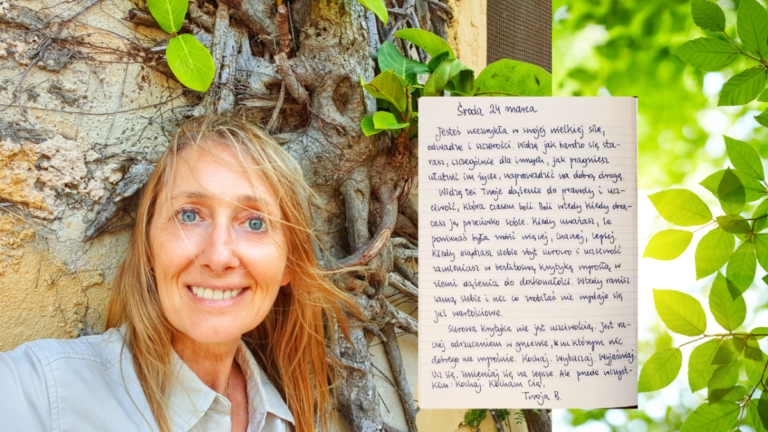 Środa 24 marca
Jesteś niezwykła w swojej wielkiej sile,
odwadze i uczciwości. Widzę jak bardzo się sta-
rasz, szczególnie dla innych, jak pragniesz
ułatwić im życie, naprowadzić na dobrą drogę.
Widzę też Twoje dążenie do prawdy i ucz-
ciwość, która czasem boli. Boli wtedy kiedy obra-
casz ją przeciwko sobie. Kiedy uważasz, że
powinnaś była robić więcej, inaczej, lepiej.
Kiedy osądzasz siebie zbyt surowo i uczciwość
zamieniasz w bezlitosną krytykę wprostą, w
ziemi dążenia do doskonałości. Wtedy ranisz
samą siebie i nic co zrobiłaś nie wydaje się
już wartościowe.
Surowa krytyka nie jest uczciwością. Jest ra-
czej odrzucaniem w gniewie, w którym nic
dobrego nie wyrośnie. Kochaj. Wybaczaj. Wyjaśniaj.
Ucz się. Zmieniaj się na lepsze. Ale przede wszyst-
kim: Kochaj. Kocham Cię!
Twoja B.